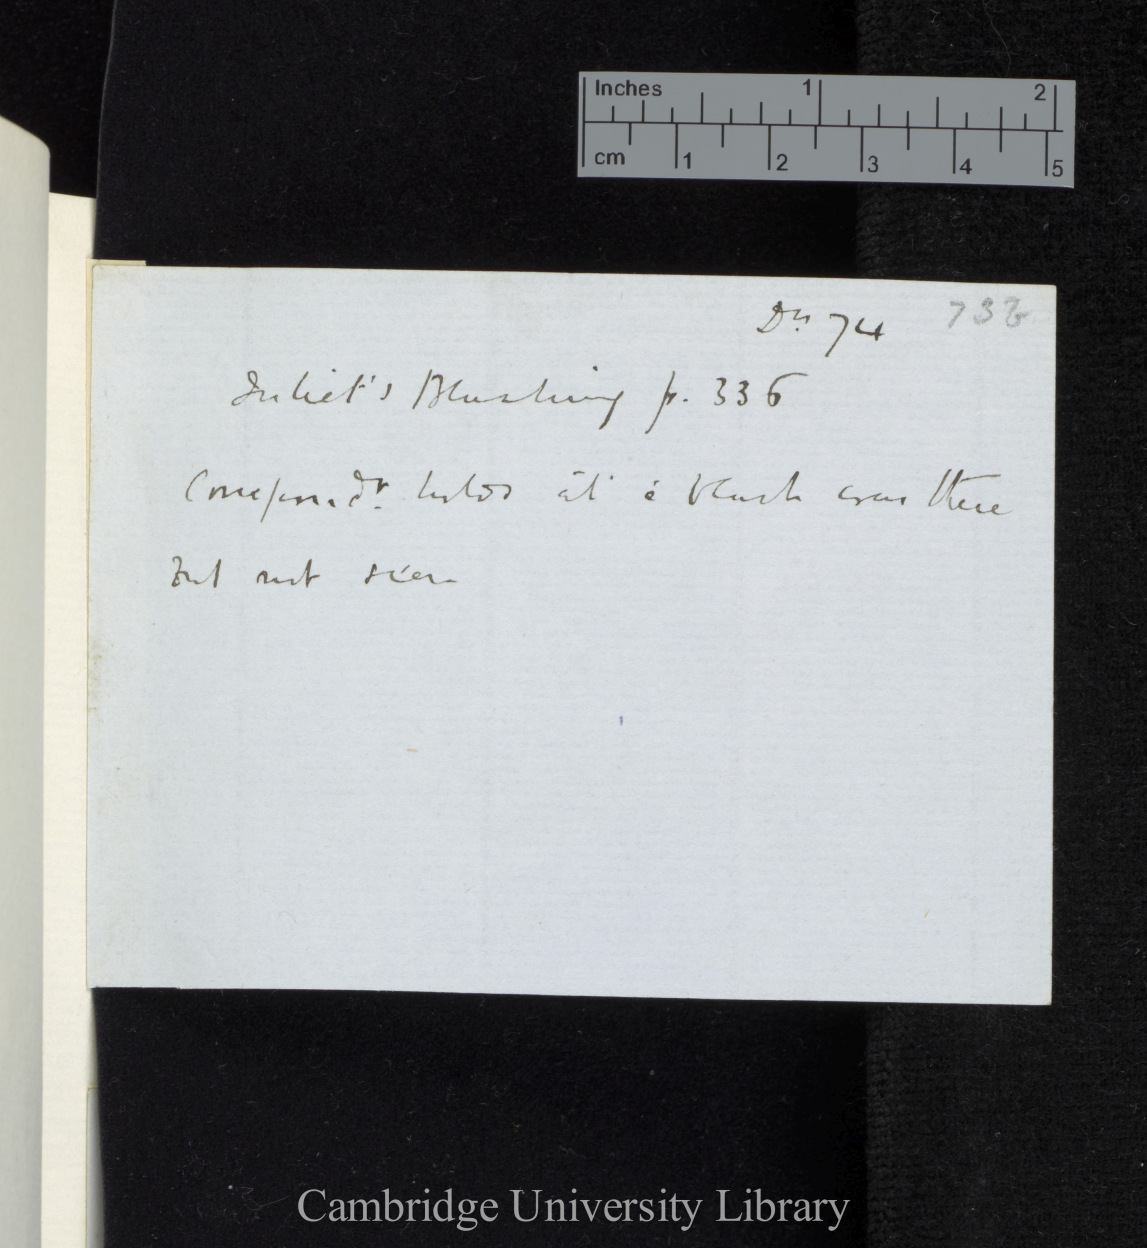 Inches 1 2
cm 1 2 3 4 5
73
74
Juliet's Blushing p. 336
blush was there
but not seen
Cambridge University Library